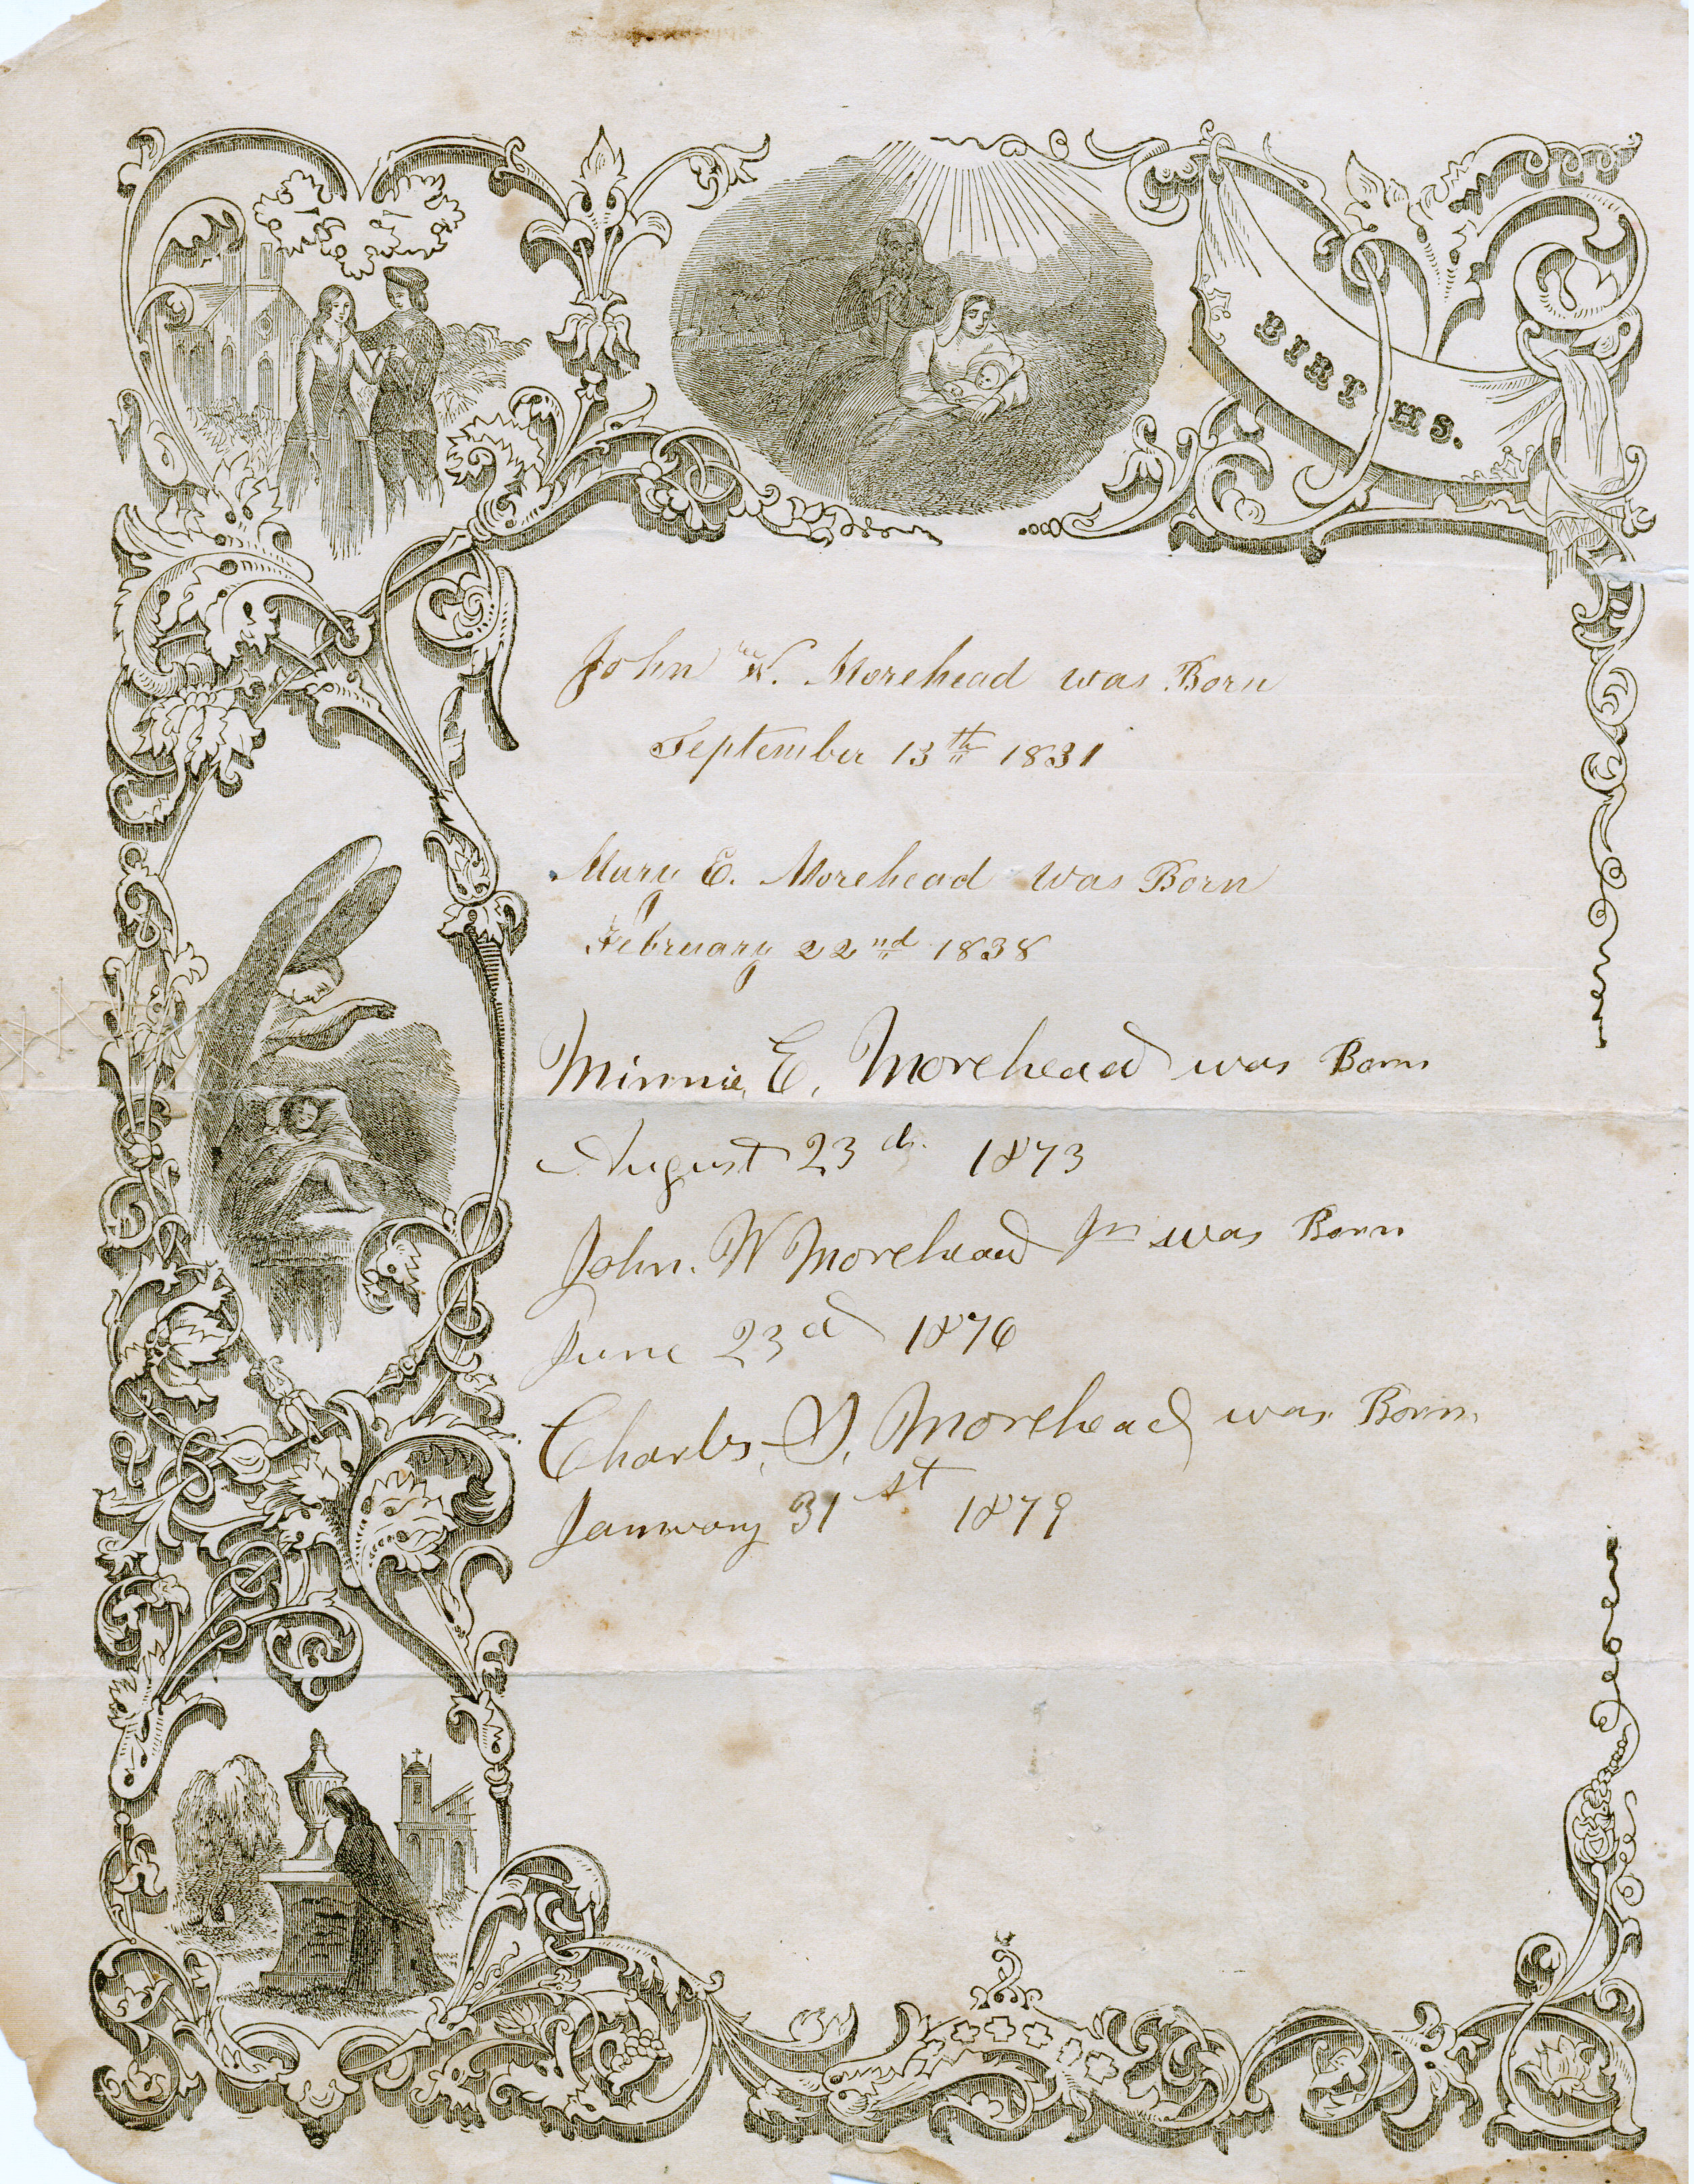 BIRTHS.
John W. Morehead was Born
September 13th 1831
Mary E. Morehead was Born
February 22nd 1838
Minnie, E, Morehead was Born
August 23d. 1873
John. W Morehead Jr was Born
June 23d 1876
Charles, Morehead was Born.
January 31st 1879